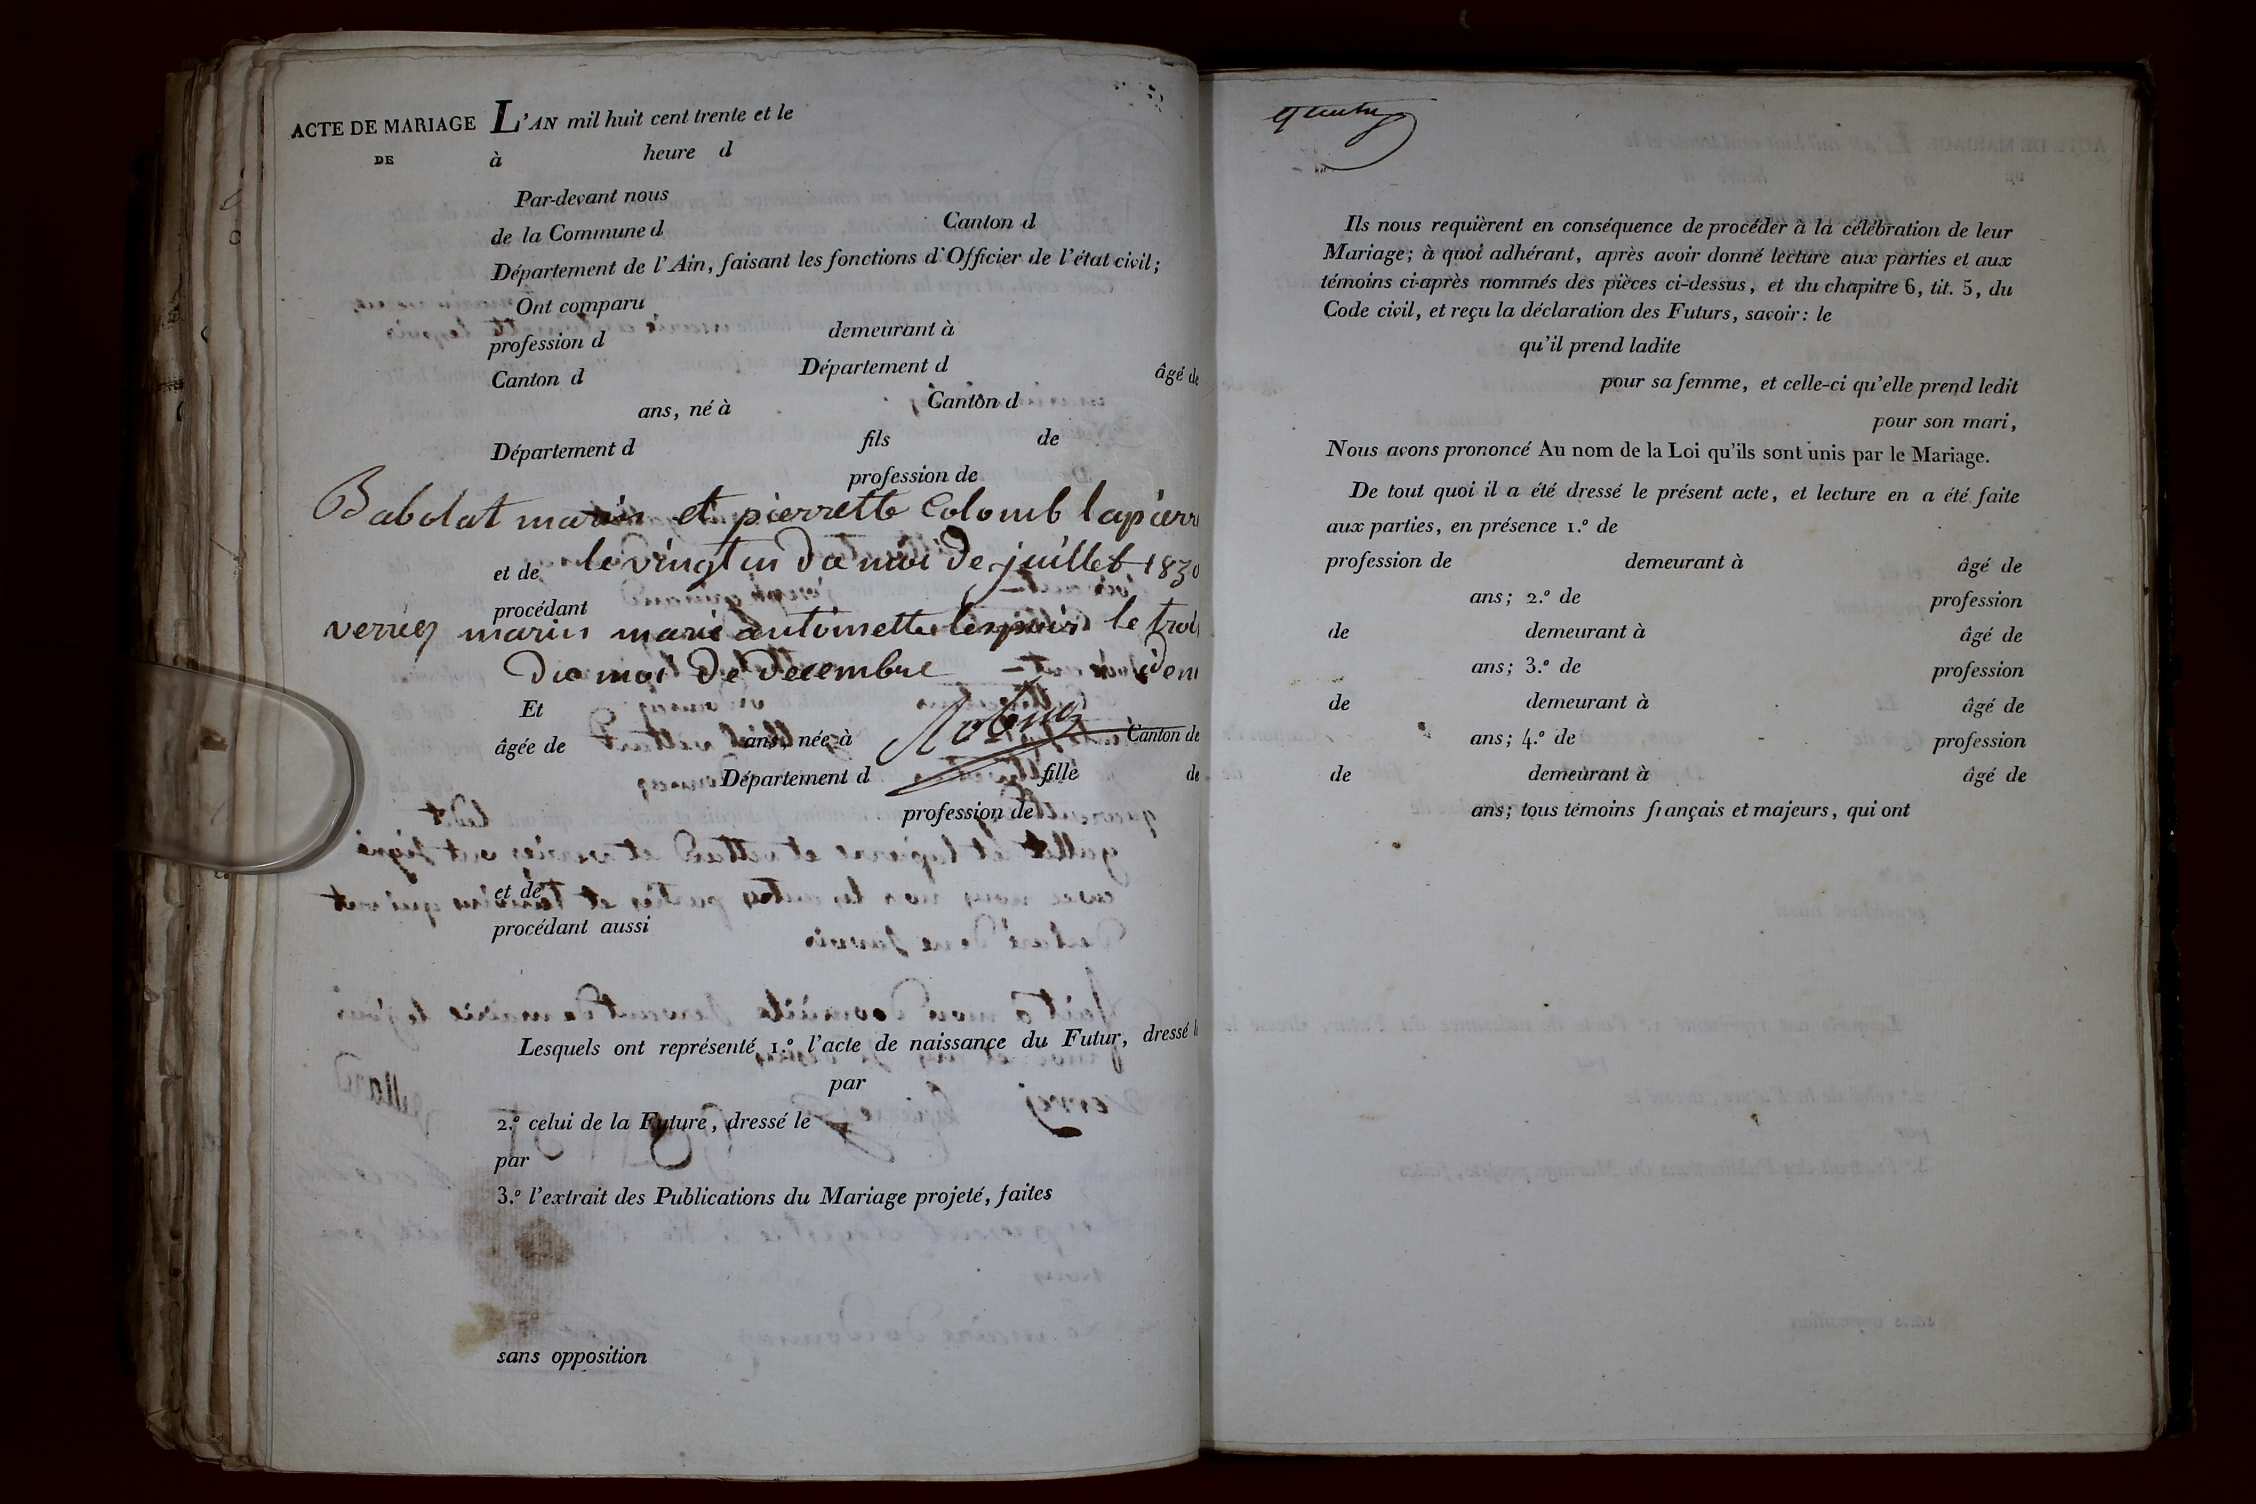 ACTE DE MARIAGE L'AN mil huit cent trente et le
DE à heure d
Par-devant nous
de la Commune d Canton d
Département de l'Ain, faisant les fonctions d'Officier de l'état civil;
Ont comparu
profession d demeurant à
Canton d Département d âgé de
ans, né à Canton d
Département d fils de
profession de
Babolat marin et pierrette Colomb lapierr
et de le vingt un du moi de juillet 1830
procédant
verriez marin marie antoinette lespinir le trois
du moi de decembre idem
Et
âgée de ans, née à Canton de
Département d fille de
profession de
et de
procédant aussi
Lesquels ont représenté 1.º l'acte de naissance du Futur, dressé l
par
2.º celui de la Future, dressé le
par
3.º l'extrait des Publications du Mariage projeté, faites
sans opposition
Ils nous requièrent en conséquence de procéder à la célébration de leur
Mariage; à quoi adhérant, après avoir donné lecture aux parties et aux
témoins ci-après nommés des pièces ci-dessus, et du chapitre 6, tit. 5, du
Code civil, et reçu la déclaration des Futurs, savoir: le
qu'il prend ladite
pour sa femme, et celle-ci qu'elle prend ledit
pour son mari,
Nous avons prononcé Au nom de la Loi qu'ils sont unis par le Mariage.
De tout quoi il a été dressé le présent acte, et lecture en a été faite
aux parties, en présence 1.º de
profession de demeurant à âgé de
ans; 2.º de profession
de demeurant à âgé de
ans; 3.º de profession
de demeurant à âgé de
ans; 4.º de profession
de demeurant à âgé de
ans; tous témoins français et majeurs, qui ont